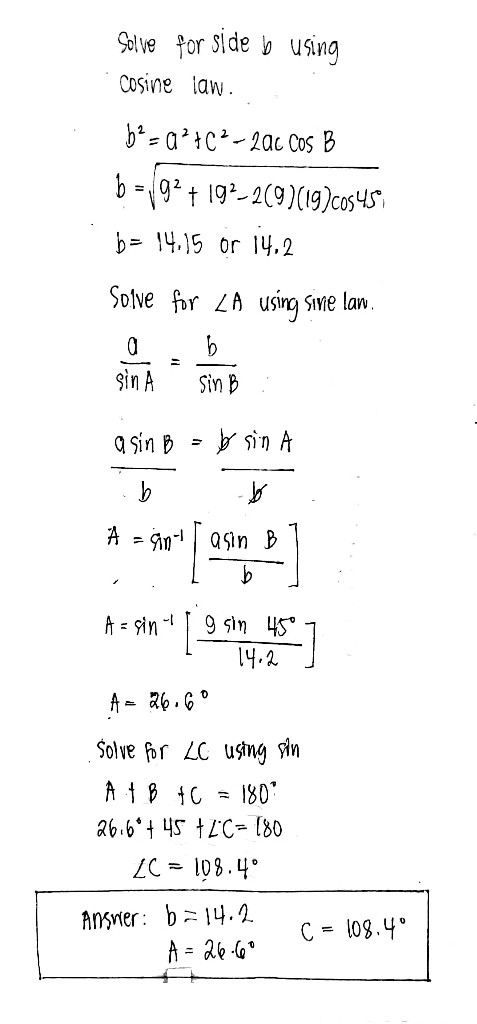 Solve for side b using
Cosine law.
b² = a² + c² - 2ac cos B
b = √9² + 19² - 2(9)(19)cos45
b = 14.15 or 14.2
Solve for ∠A using sine law.
a/sin A = b/sin B
a sin B/b = b sin A/b
A = sin⁻¹ [a sin B/b]
A = sin⁻¹ [9 sin 45°/14.2]
A = 26.6°
Solve for ∠C using sin
A + B + C = 180°
26.6° + 45 + ∠C = 180
∠C = 108.4°
Answer: b = 14.2 C = 108.4°
A = 26.6°